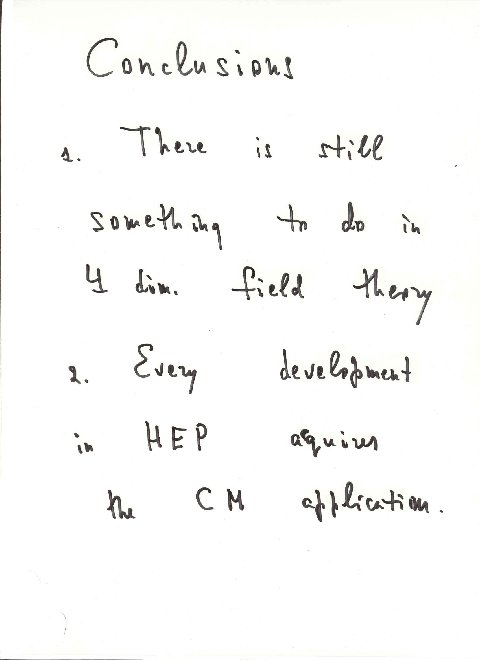 Conclusions
1. There is still
something to do in
4 dim. field theory
2. Every development
in HEP acquires
the CM application.